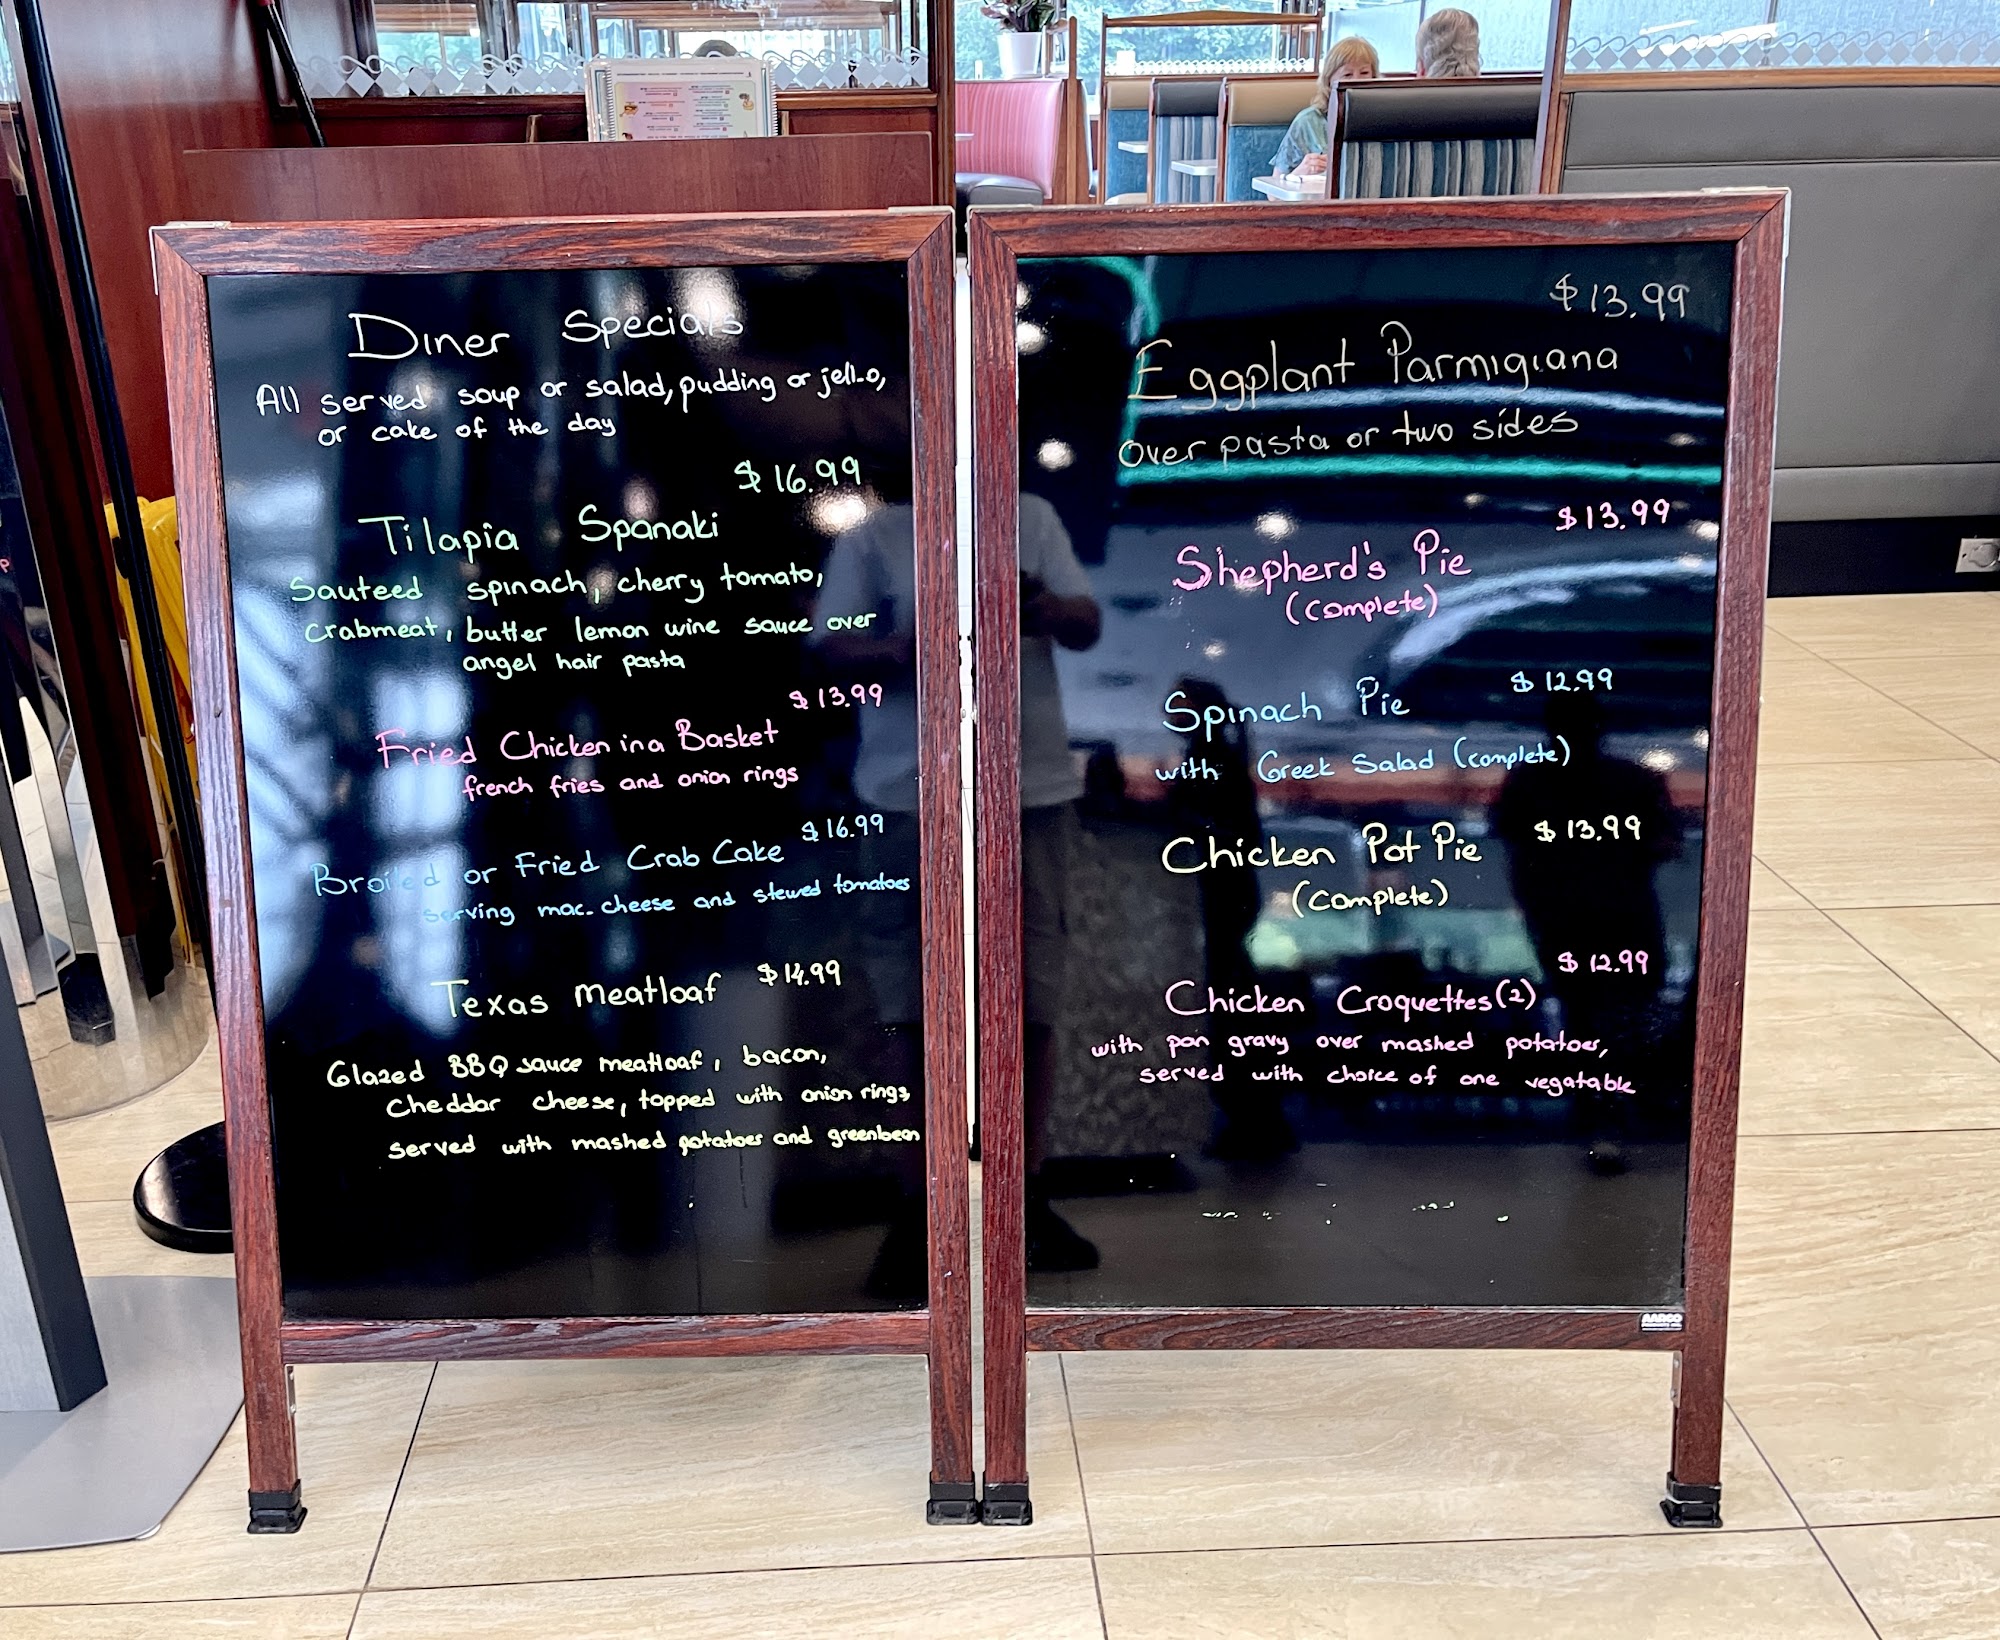 Diner Specials
All served soup or salad, pudding or jell-o,
or cake of the day
$16.99
Tilapia Spanaki
Sauteed spinach, cherry tomato,
crabmeat, butter lemon wine sauce over
angel hair pasta
$13.99
Fried Chicken in a Basket
french fries and onion rings
$16.99
Broiled or Fried Crab Cake
serving mac. cheese and stewed tomatoes
Texas Meatloaf $14.99
Glazed BBQ sauce meatloaf, bacon,
cheddar cheese, topped with onion rings
served with mashed potatoes and greenbean
$13.99
Eggplant Parmigiana
over pasta or two sides
$13.99
Shepherd's Pie
(complete)
$12.99
Spinach Pie
with Greek Salad (complete)
$13.99
Chicken Pot Pie
(complete)
$12.99
Chicken Croquettes (2)
with pan gravy over mashed potatoes,
served with choice of one vegatable
AARCO